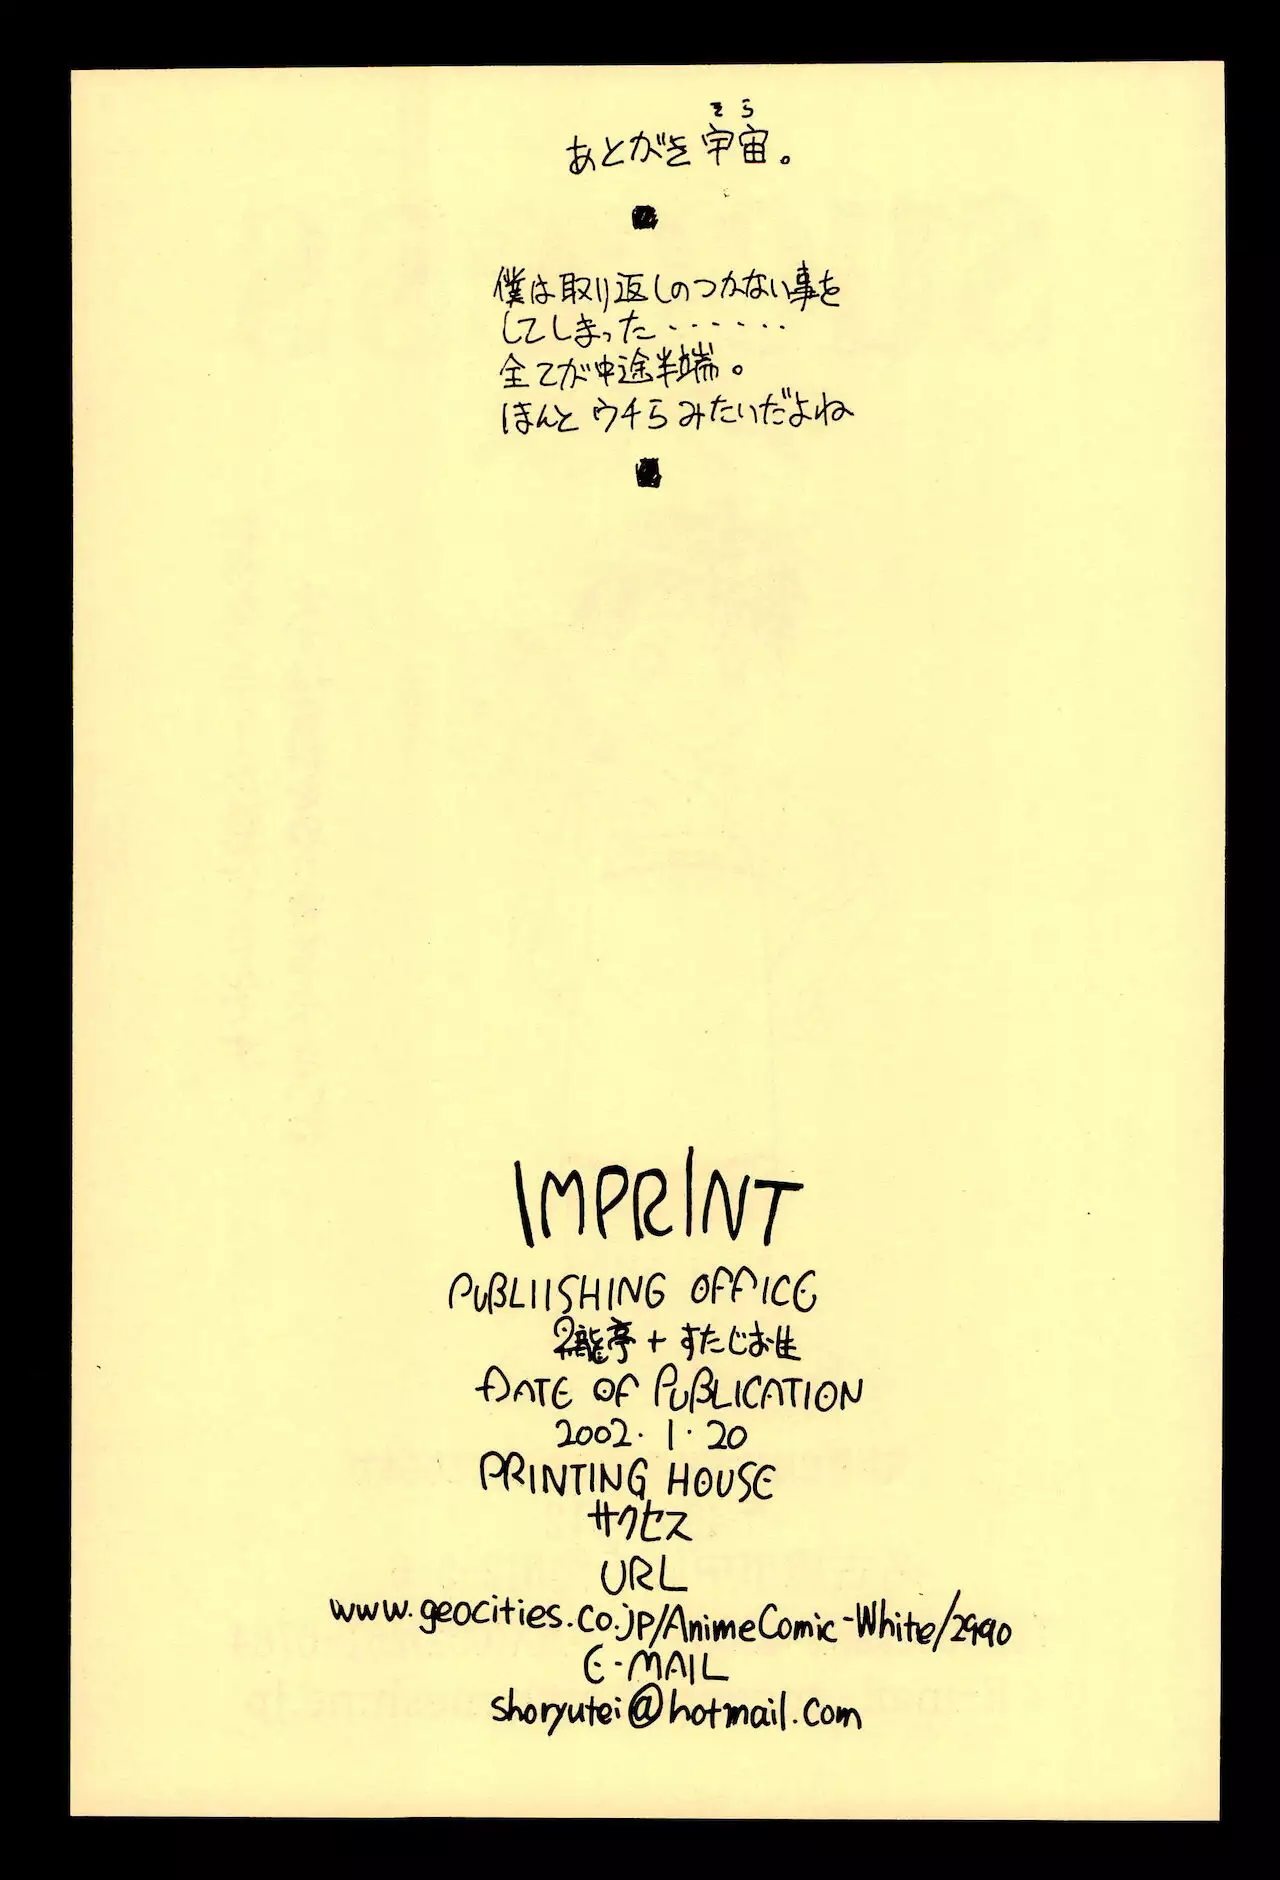 そら
あとがき宇宙。
僕は取り返しのつかない事を
してしまった・・・・・・
全てが中途半端。
ほんと ウチら みたいだよね
IMPRINT
PUBLIISHING OFFICE
龍亭 + すたじお生
DATE OF PUBLICATION
2002. 1. 20
PRINTING HOUSE
サクセス
URL
www.geocities.co.jp/AnimeComic-White/2990
E-MAIL
shoryutei@hotmail.com